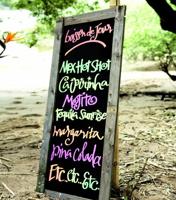 boisson de jour
Mex Hot Shot
Caipirinha
Mojito
Tequila Sunrise
margarita
Pina Colada
Etc. Etc. Etc